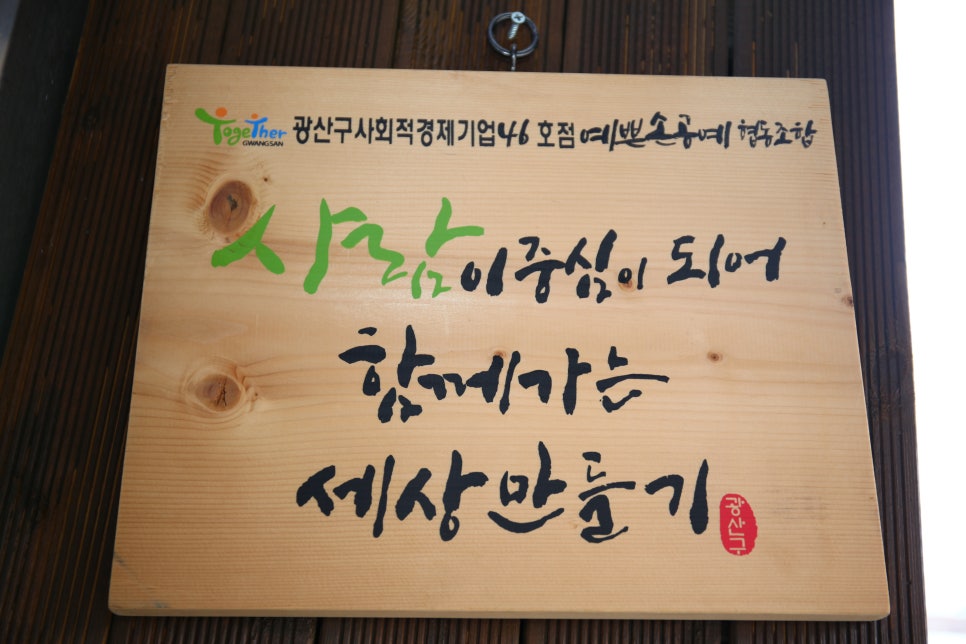 Together 광산구사회적경제기업46호점 예쁜손공예 협동조합
GWANGSAN
사람이중심이 되어
함께가는
세상만들기
광산구